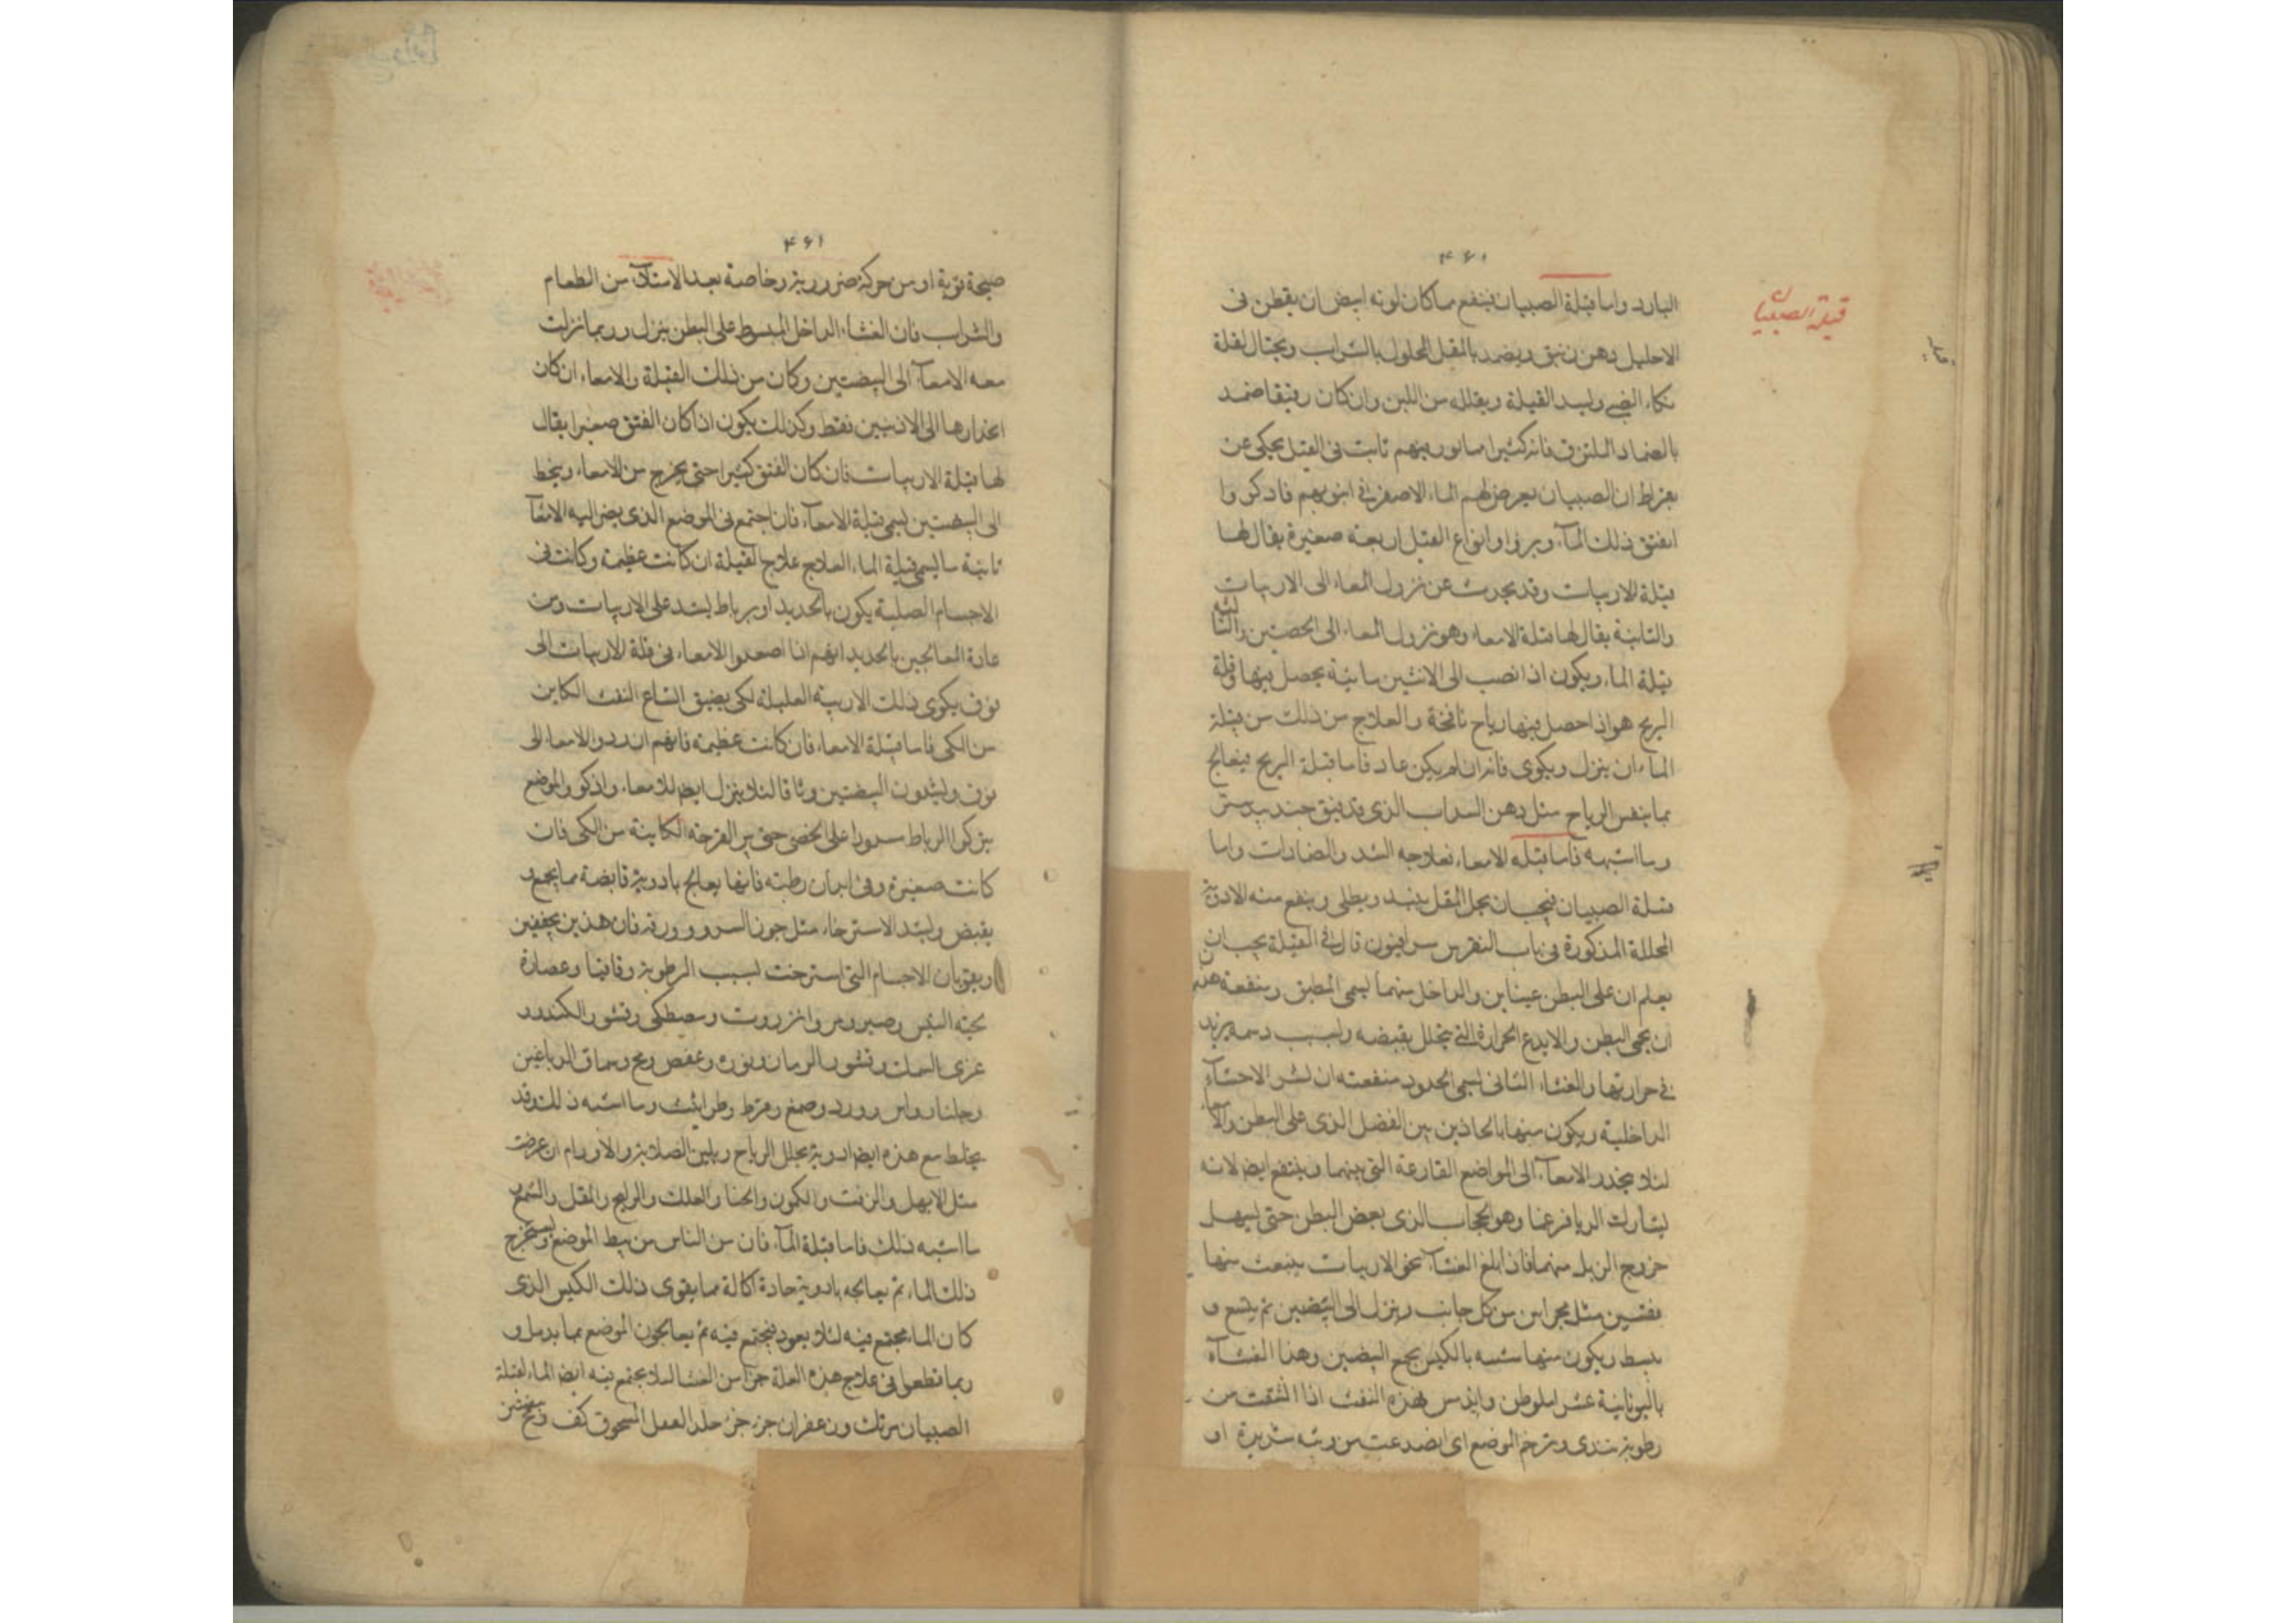 ۴۶۱
قيلة الصبيان
البارد واما قيلة الصبيان فينفع مما كان لونه ابيض ان يقطر فى
الاحليل دهن زنبق ويضمد بالمقل المحلول بالشراب ويحتال لقلة
بكاء الصبى وليشد القيلة ويقلل من اللبن وان كان رقيقا ضمد
بالضماد الملتزق فانه كثيرا ما نور بينهم ثابت فى القيل يحكى عن
بقراط ان الصبيان يعرض لهم الماء الاصفر فى ابنوبهم فاذكروا
انفتق ذلك المآء وبرؤا وانواع القيل اربعة صغيرة يقال لها
قيلة الاربيات وقد يحدث عن نزول المعاء الى الاربيات
والثانية يقال لها قيلة الامعاء وهو نزول المعاء الى الخصيتين والثالث
قيلة الماء ويكون اذا انصب الى الانثيين مائية يحصل فيها وقيلة
الريح هو اذا حصل فيها رياح نافخة والعلاج من ذلك من قيلة
الماء ان ينزل ويكوى فانه ان لم يكن عاد فاما قيلة الريح فيعالج
مما ينفس الرياح مثل دهن السداب الذى قد فتق جندبيدستر
وما اشبهه فاما قيلة الامعاء فعلاجه الشد والضمادات واما
قيلة الصبيان فيجب ان يحل المقل بنبيذ ويطلى وينفع منه الادوية
المحللة المذكورة فى باب النقرس سرافيون قال فى القيلة يجب ان
يعلم ان على البطن غشاين والداخل منهما يسمى المطبق ومنفعة هذين
ان يحمى البطن والا يدع الحرارة التى تتحلل بقبضه وبسبب دسمه يزيد
فى حرارتها والغشاء الثانى يسمى الحدود منفعته ان يستر الاحشآء
الداخلية ويكون منها بالحاذين بين الفضل الذى على البطن والامعاء
لئلا ينحدر الامعآء الى المواضع الفارغة التى بينهما وينتفع ايضا لانه
يشارك الديافرغما وهو الحجاب الذى بعض البطن حتى يسهل
خروج الزبل منهما فاذا بلغ الغشآء نحو الاربيات ينبعث منها
ثقبين مثل مجرايين من كل جانب وينزل الى البيضتين ثم يتسع و
ينبسط ويكون منها شبيه بالكيس يجمع البيضتين وهذا الغشآء
رطوبة تندى وترخى الموضع اى ايضا عن وثبة شديدة او
۴۶۱
صيحة قوية او من حركة ضرورية وخاصة بعد الامتلآء من الطعام
والشراب فان الغشاء الداخل المبسوط على البطن ينزل وربما نزلت
معه الامعآء الى البيضتين وكان من ذلك القيلة والامعاء ان كان
انحدارها الى الانثيين فقط وكذلك يكون اذا كان الفتق صغيرا يقال
لها قيلة الاربيات فان كان الفتق كثيرا حتى يخرج من الامعاء وينحط
الى البيضتين يسمى قيلة الامعآء فان اجتمع فى الموضع الذى يصير اليه الامعآ
مائية ما يسمى قيلة الماء العلاج علاج القيلة ان كانت عظيمة وكانت فى
الاجسام الصلبة يكون بالحديد او برباط يشد على الاربيات ومن
عادة المعالجين بالحديد انهم اذا اصعدوا الامعاء فى قلة الاربيات الى
فوق يكوى ذلك الاربية العليلة لكى يضيق اتساع الثقب الكاين
من الكى فاما قيلة الامعاء فان كانت عظيمة فانهم ان ردوا الامعا الى
فوق ويشدون البيضتين وثاقا لئلا ينزل ايضا الامعاء واذا كووا الموضع
يتركوا الرباط مشدودا على الخصى حتى يبرء القرحة الكاينة من الكى فان
كانت صغيرة وفى ابدان رطبة فانها يعالج بادوية قابضة مما يجمع و
يقبض ويشد الاسترخاء مثل جوز السرو وورقه فان هذين يجففين
ويقويان الاجسام التى استرخت بسبب الرطوبة وقاقيا وعصارة
لحية التيس وصبر ومر وانزروت ومصطكى وقشور الكندر و
غرى السمك وقشور الرمان ونوره وعفص ومح وسماق الدباغين
وجلنار واس وورد وصمغ وقرظ وطراثيث وما اشبه ذلك وقد
يخلط مع هذه ايضا ادوية تحلل الرياح ويلين الصلابة والاورام ان عرضت
مثل الابهل والزفت والكمون والحنا والعلك والراتينج والمقل والشمع
ما اشبه ذلك فاما قيلة المآء فان من الناس من يبط الموضع ويستخرج
ذلك الماء ثم يعالجه بادوية حادة اكالة مما يقوى ذلك الكيس الذى
كان الماء مجتمع فيه لئلا يعود فيجتمع فيه ثم يعالجون الموضع بما يدمل و
ربما قطعوا فى علاج هذه العلة جزءا من الغشا لئلا يجتمع فيه ايضا الماء لقيلة
الصبيان مرتك وزعفران جزء جزء